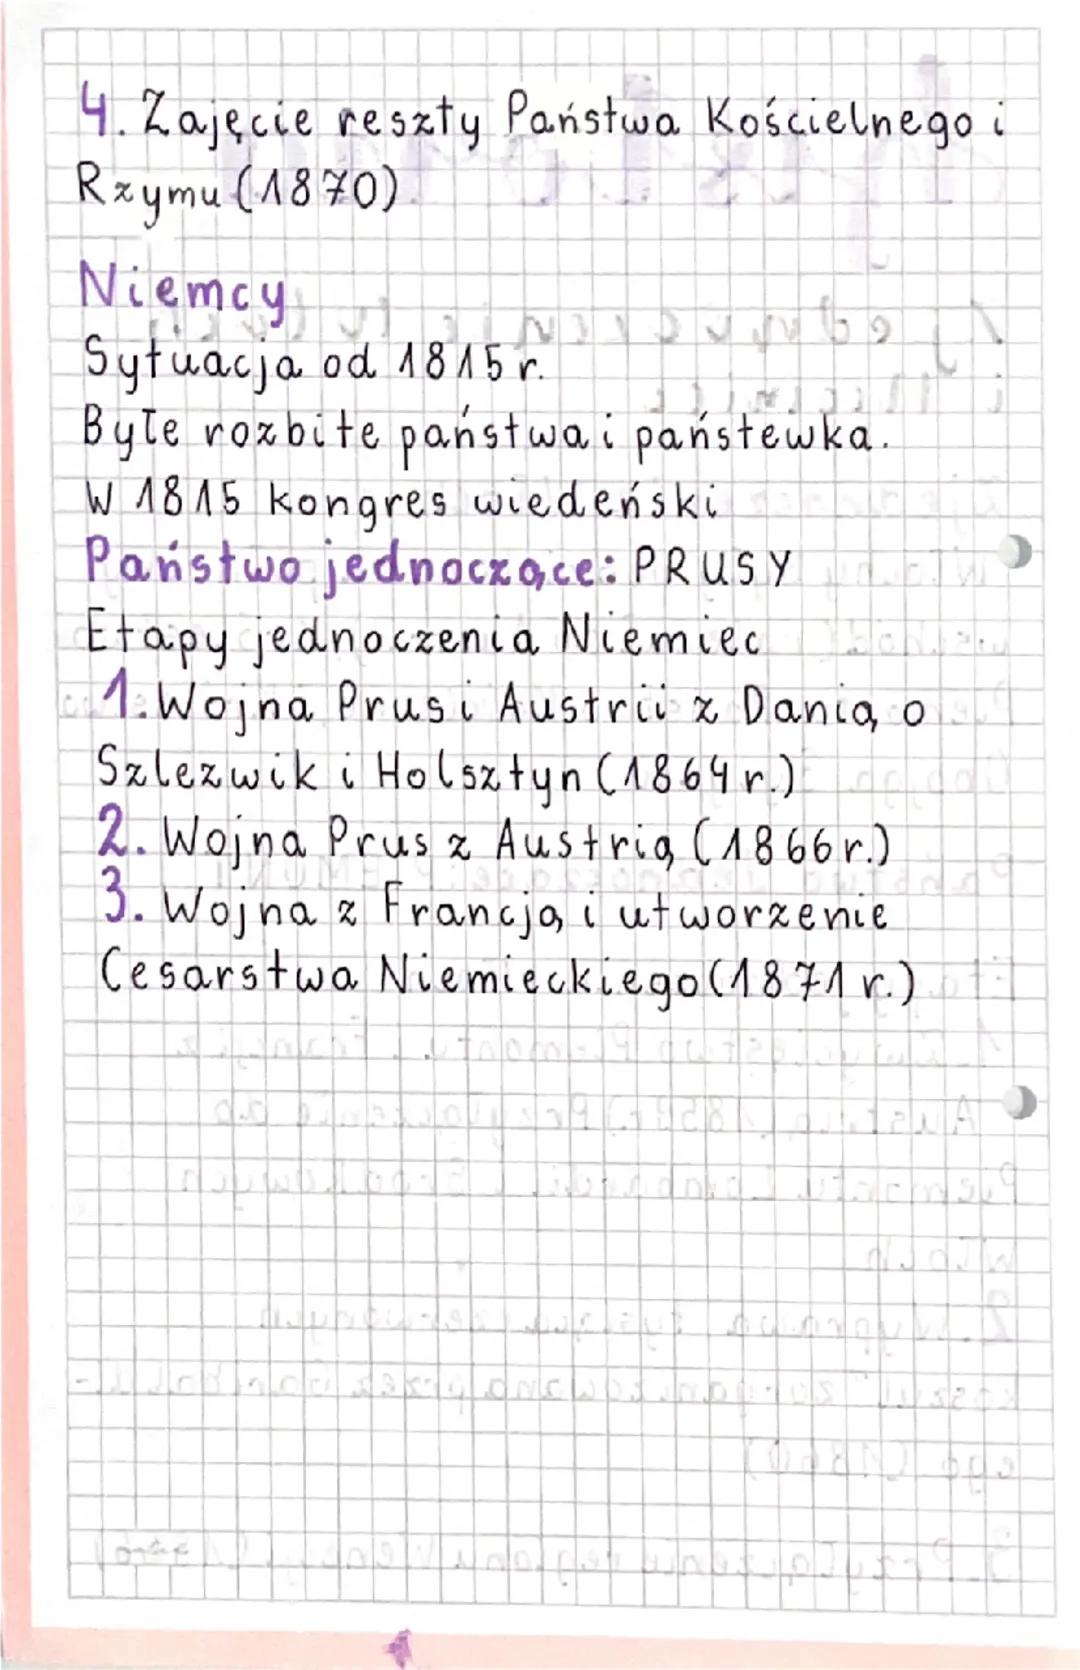 4. Zajęcie reszty Państwa Kościelnego i
Rzymu (1870)
Niemcy
Sytuacja od 1815 r.
Byłe rozbite państwa i państewka.
W 1815 kongres wiedeński
Państwo jednoczące: PRUSY
Etapy jednoczenia Niemiec
1. Wojna Prus i Austrii z Danią o
Szlezwik i Holsztyn (1864 r.)
2. Wojna Prus z Austrią (1866 r.)
3. Wojna z Francją i utworzenie
Cesarstwa Niemieckiego (1871 r.)